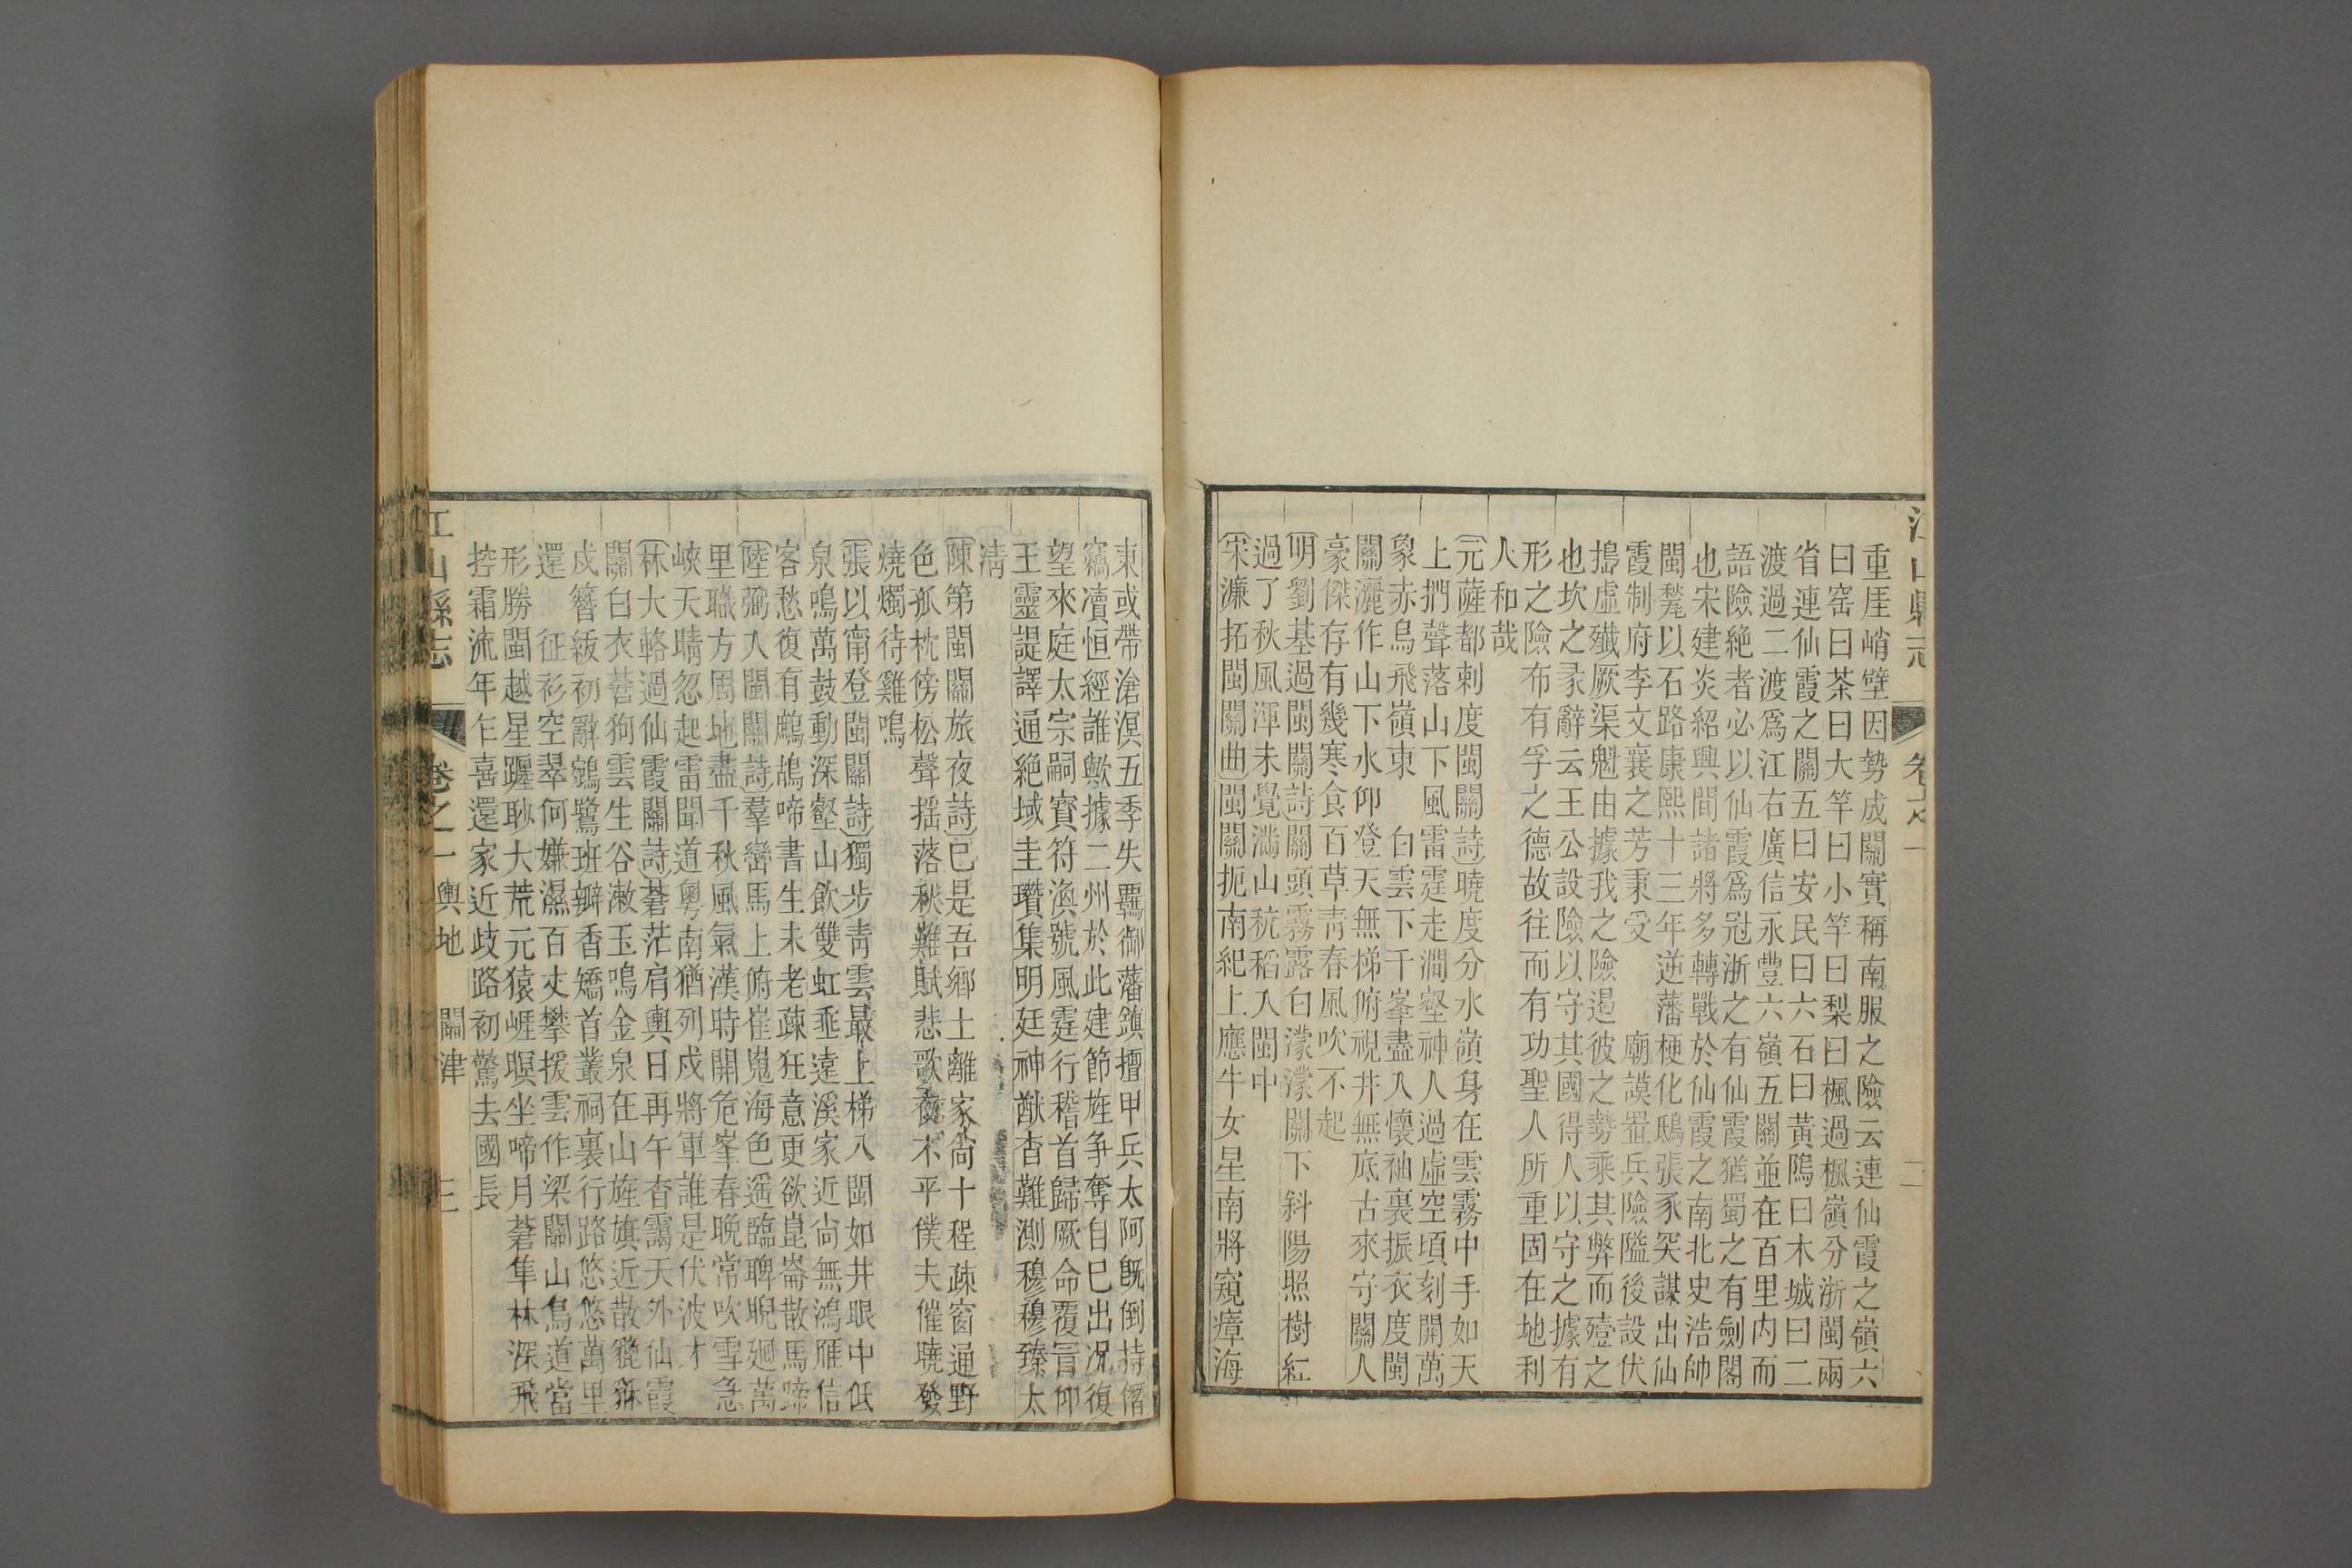 重厓峭壁因勢成關實稱南服之險云連仙霞之嶺六
曰窑曰茶曰大竿曰小竿曰梨曰楓過楓嶺分浙閩兩
省連仙霞之關五曰安民曰六石曰黃隖曰木城曰二
渡過二渡爲江右廣信永豐六嶺五關並在百里内而
語險絶者必以仙霞爲冠浙之有仙霞猶蜀之有劍閣
也宋建炎紹興間諸將多轉戰於仙霞之南北史浩帥
閩甃以石路康熙十三年逆藩梗化鴟張豕突謀出仙
霞制府李文襄之芳秉受　廟謨畱兵險隘後設伏
搗虛殲厥渠魁由據我之險遏彼之勢乘其弊而殪之
也坎之彖辭云王公設險以守其國得人以守之據有
形之險布有孚之德故往而有功聖人所重固在地利
人和哉
（元薩都剌度閩關詩）曉度分水嶺身在雲霧中手如天
上捫聲落山下風雷霆走澗壑神人過虛空頃刻開萬
象赤烏飛嶺東　白雲下千峯盡入懷袖裏振衣度閩
關灑作山下水仰登天無梯俯視井無底古來守關人
豪傑存有幾寒食百草靑春風吹不起
（明劉基過閩關詩）關頭霧露白濛濛關下斜陽照樹紅
過了秋風渾未覺滿山秔稻入閩中
（宋濂拓閩關曲）閩關扼南紀上應牛女星南將窺瘴海
江山縣志　卷之一
東或帶滄溟五季失覊御藩鎮擅甲兵太阿旣倒持僭
竊瀆恒經誰歟據二州於此建節旌争奪自巳出况復
望來庭太宗嗣寶符渙號風霆行稽首歸厥命覆冒仰
王靈諟譯通絶域圭瓚集明廷神猷杳難測穆穆臻太
淸
（陳第閩關旅夜詩）已是吾鄉土離家尙十程疎窗通野
色孤枕傍松聲摇落秋難賦悲歌夜不平僕夫催曉發
燒燭待雞鳴
（張以甯登閩關詩）獨步靑雲最上梯入閩如井眼中低
泉鳴萬鼓動深壑山飮雙虹垂遠溪家近尙無鴻雁信
客愁復有鷓鴣啼書生未老疎狂意更欲崑崙散馬蹄
（陸弼入閩關詩）羣巒馬上俯崔嵬海色遥臨睥睨廻萬
里職方周地盡千秋風氣漢時開危峯春晚常吹雪急
峽天晴忽起雷聞道粵南猶列戍將軍誰是伏波才
（林大輅過仙霞關詩）莽茫肩輿日再午杳靄天外仙霞
關白衣蒼狗雲生谷漱玉鳴金泉在山旌旗近散貔貅
戍簪紱初辭鵷鷺班瓣香矯首叢祠裏行路悠悠萬里
還　征衫空翠何嫌濕百丈攀援雲作梁關山鳥道當
形勝閩越星躔耿大荒元猿崕暝坐啼月蒼隼林深飛
控霜流年乍喜還家近歧路初驚去國長
江山縣志　卷之一　輿地　關津　三